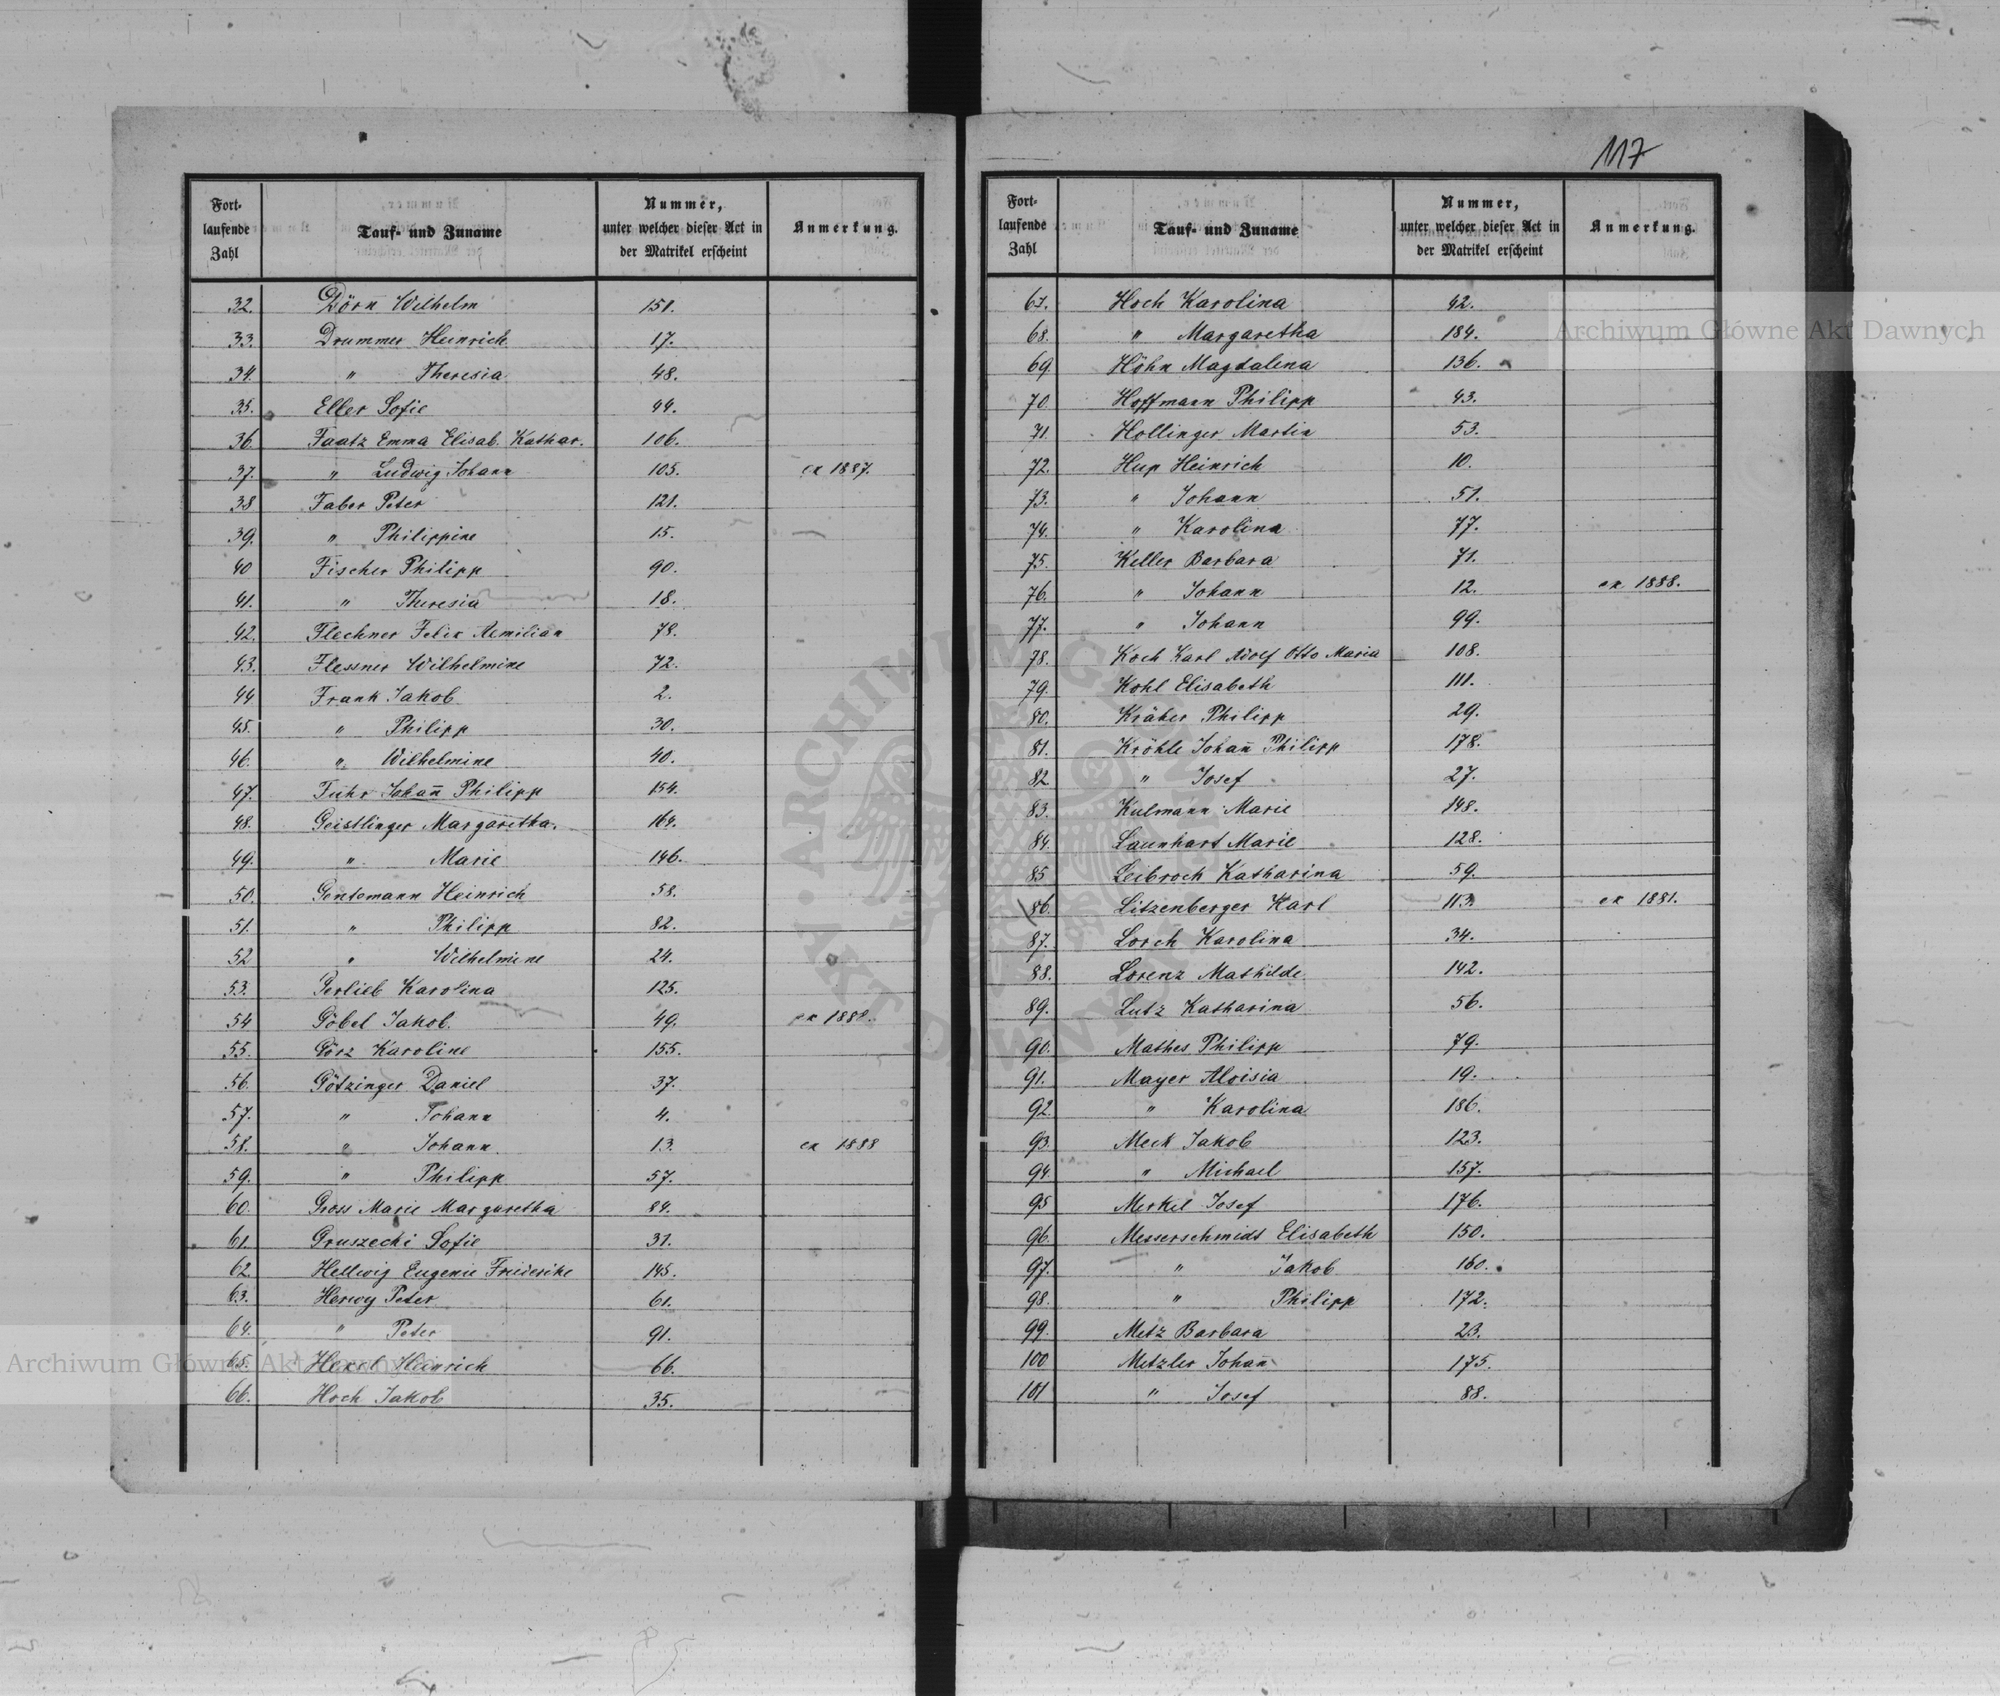 117
Fortlaufende Zahl | Tauf- und Zuname | Nummer, unter welcher dieser Act in der Matrikel erscheint | Anmerkung.
32. Dörn Wilhelm 151.
33. Drummer Heinrich 17.
34. " Theresia 48.
35. Eller Sofie 44.
36. Faatz Emma Elisab. Kathar. 106.
37. " Ludwig Johann 105. ex 1887.
38 Faber Peter 121.
39. " Philippine 15.
40 Fischer Philipp 90.
41. " Theresia 18.
42. Flechner Felix Aemilian 78.
43. Flessner Wilhelmine 72.
44. Frank Jakob 2.
45. " Philipp 30.
46. " Wilhelmine 40.
47. Fuhr Johan̄ Philipp 154.
48. Geistlinger Margaretha. 164.
49. " Marie 146.
50. Gentemann Heinrich 58.
51. " Philipp 82.
52 " Wilhelmine 24.
53. Gerlieb Karolina 125.
54 Göbel Jakob. 49. ex 1888.
55. Görz Karoline 155.
56. Götzinger Daniel 37.
57. " Johann 4.
58. " Johann. 13. ex 1888
59. " Philipp 57.
60. Gross Marie Margaretha 84.
61. Gruszecki Sofie 31.
62. Hellwig Eugenie Friederike 145.
63. Herwy Peter 61.
64. " Peter 91.
65. Hexel Heinrich 66.
66. Hoch Jakob 35.
Fortlaufende Zahl | Tauf- und Zuname | Nummer, unter welcher dieser Act in der Matrikel erscheint | Anmerkung.
67. Hoch Karolina 42.
68. " Margaretha 184.
69. Höhn Magdalena 136.
70. Hoffmann Philipp 43.
71. Hollinger Martin 53.
72. Hup Heinrich 10.
73. " Johann 51.
74. " Karolina 77.
75. Keller Barbara 71.
76. " Johann 12. ex 1888.
77. " Johann 99.
78. Koch Karl Adolf Otto Maria 108.
79. Kohl Elisabeth 111.
80. Kräher Philipp 29.
81. Kröhle Johan̄ Philipp 178.
82 " Josef 27.
83. Kulmann Marie 148.
84. Launhart Marie 128.
85 Leibroch Katharina 59.
86. Litzenberger Karl 113. ex 1881.
87. Lorch Karolina 34.
88. Lorenz Mathilde 142.
89. Lutz Katharina 56.
90. Mathes Philipp 79.
91. Mayer Aloisia 19.
92. " Karolina 186.
93. Meck Jakob 123.
94. " Michael 157.
95 Merkel Josef 176.
96. Messerschmidt Elisabeth 150.
97. " Jakob 160.
98. " Philipp 172.
99. Metz Barbara 23.
100 Metzler Johan̄ 175.
101 " Josef 88.
Archiwum Główne Akt Dawnych
Archiwum Główne Akt Dawnych